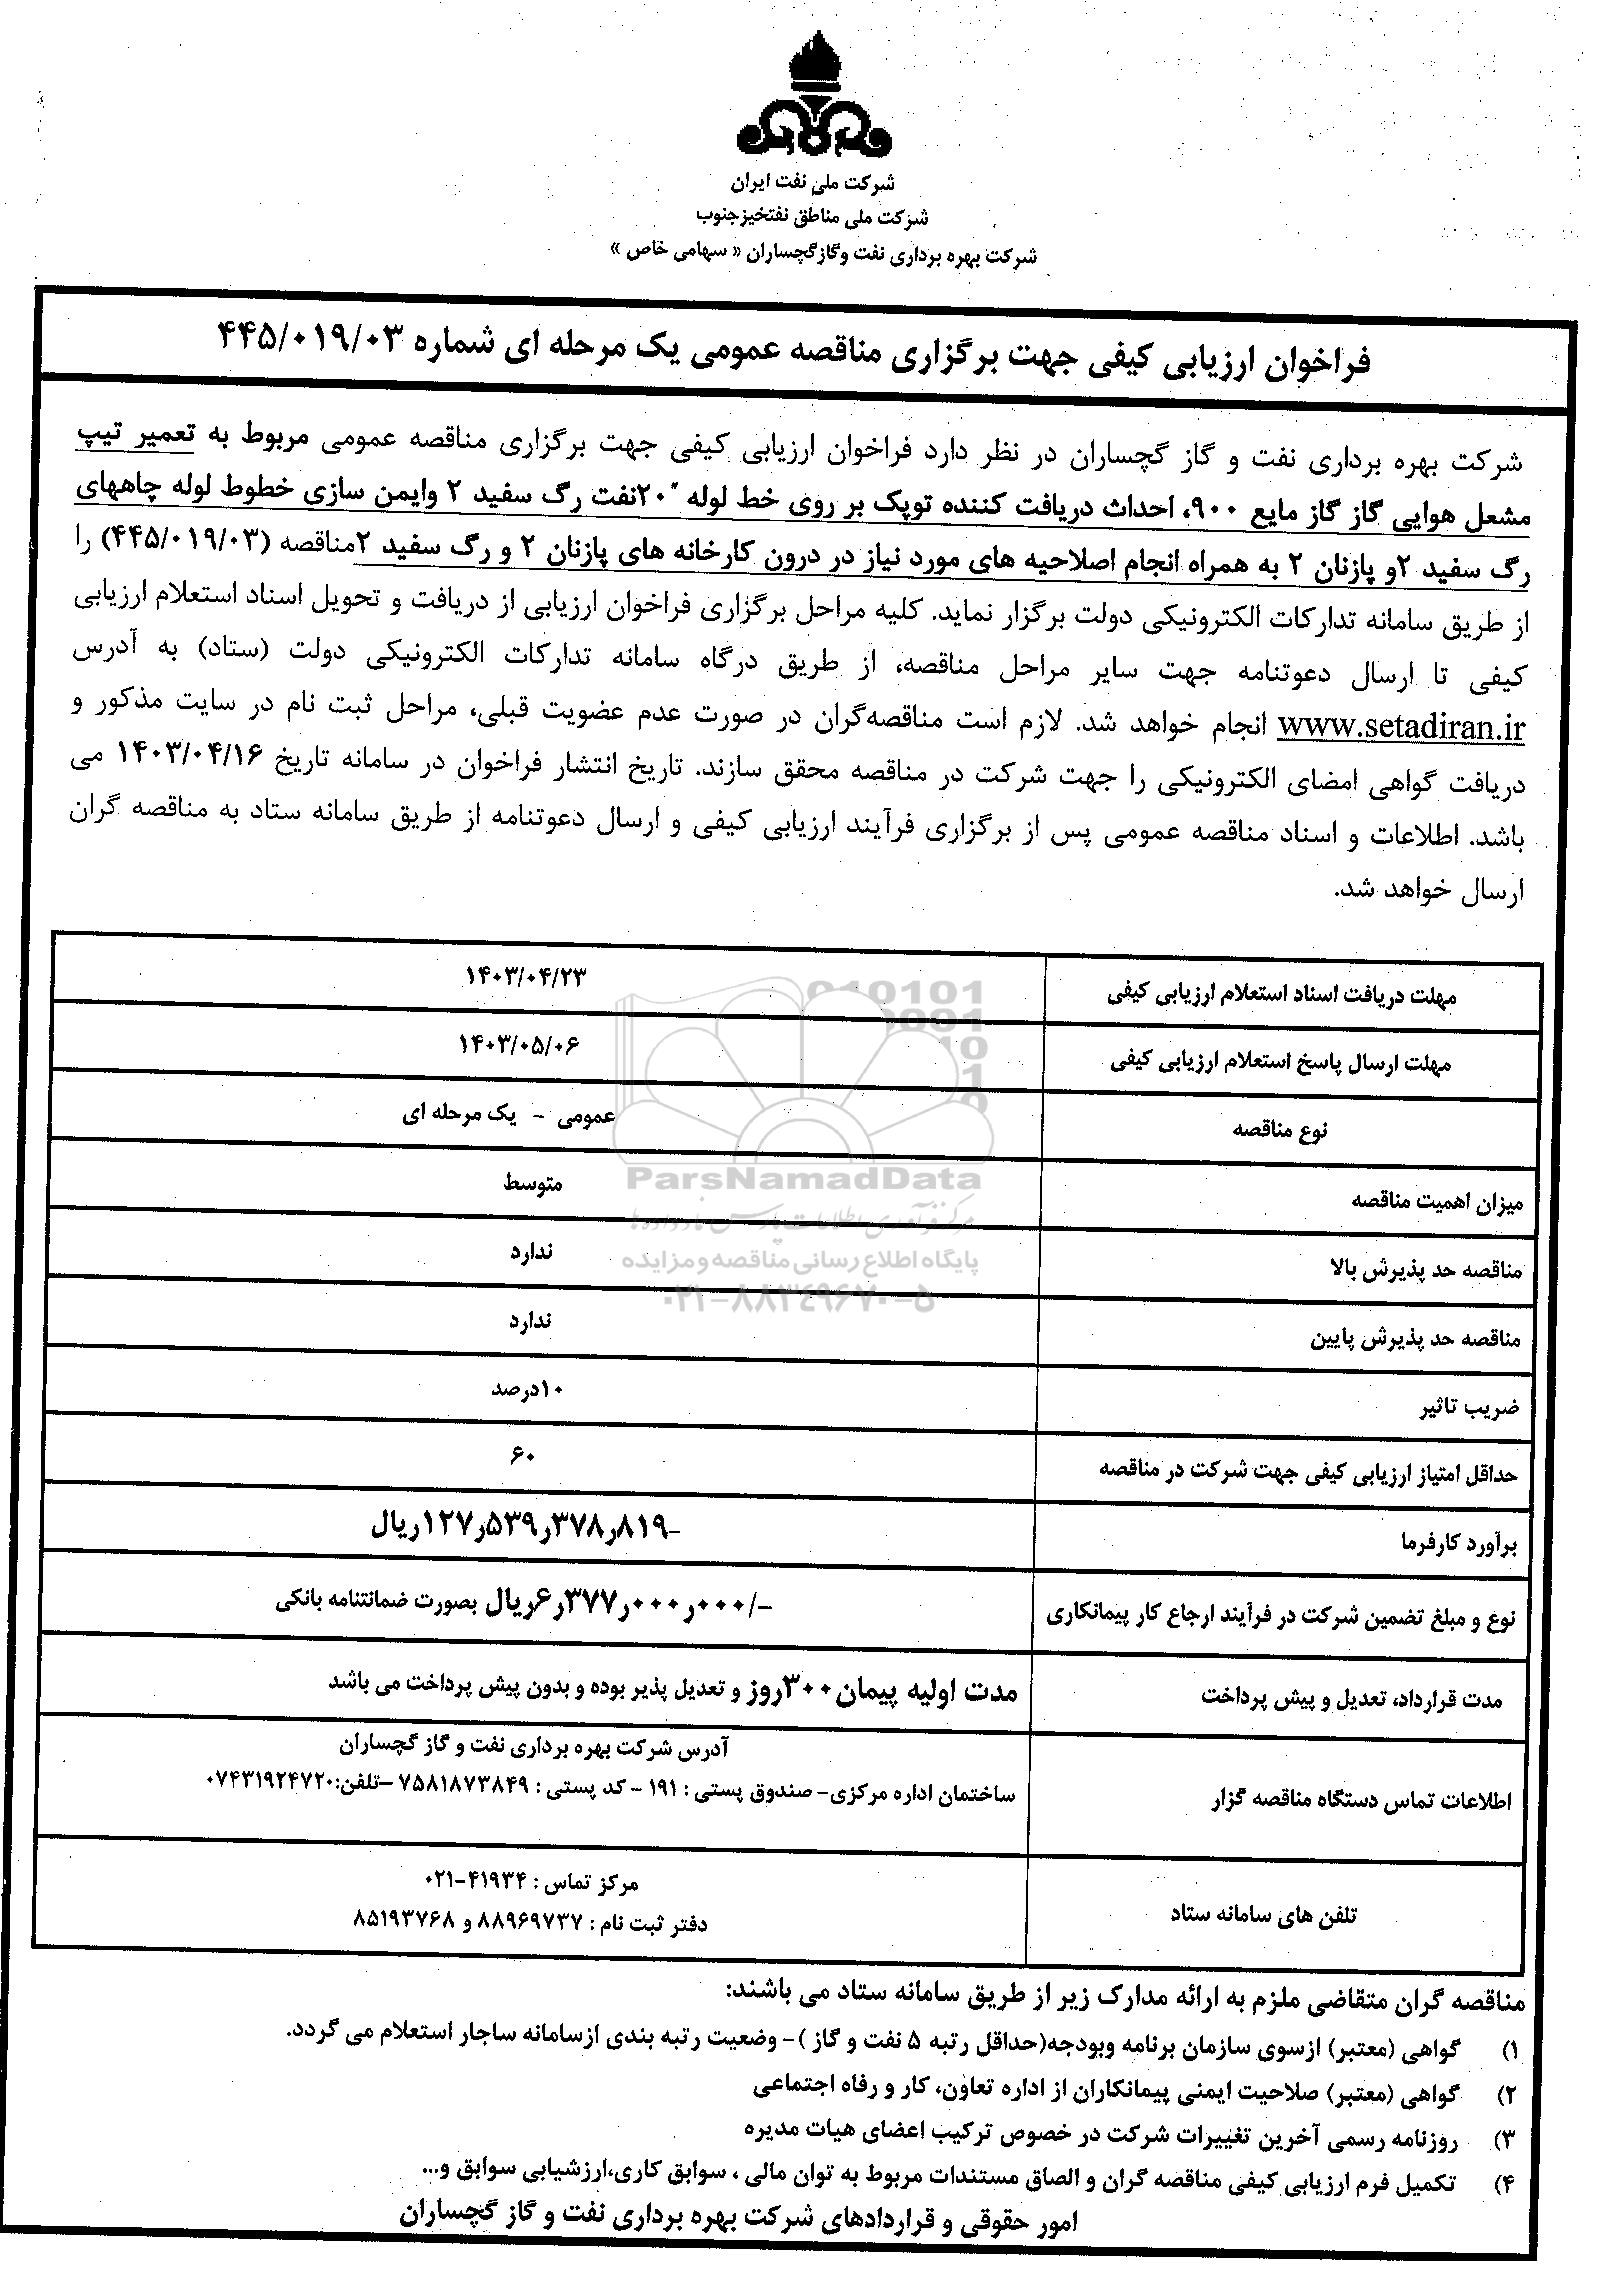 شرکت ملی نفت ایران
شرکت ملی مناطق نفتخیزجنوب
شرکت بهره برداری نفت وگازگچساران « سهامی خاص »
فراخوان ارزیابی کیفی جهت برگزاری مناقصه عمومی یک مرحله ای شماره ۴۴۵/۰۱۹/۰۳
شرکت بهره برداری نفت و گاز گچساران در نظر دارد فراخوان ارزیابی کیفی جهت برگزاری مناقصه عمومی مربوط به تعمیر تیپ
مشعل هوایی گاز گاز مایع ۹۰۰، احداث دریافت کننده توپک بر روی خط لوله "۲۰نفت رگ سفید ۲ وایمن سازی خطوط لوله چاههای
رگ سفید ۲و پازنان ۲ به همراه انجام اصلاحیه های مورد نیاز در درون کارخانه های پازنان ۲ و رگ سفید ۲مناقصه (۴۴۵/۰۱۹/۰۳) را
از طریق سامانه تدارکات الکترونیکی دولت برگزار نماید. کلیه مراحل برگزاری فراخوان ارزیابی از دریافت و تحویل اسناد استعلام ارزیابی
کیفی تا ارسال دعوتنامه جهت سایر مراحل مناقصه، از طریق درگاه سامانه تدارکات الکترونیکی دولت (ستاد) به آدرس
www.setadiran.ir انجام خواهد شد. لازم است مناقصه‌گران در صورت عدم عضویت قبلی، مراحل ثبت نام در سایت مذکور و
دریافت گواهی امضای الکترونیکی را جهت شرکت در مناقصه محقق سازند. تاریخ انتشار فراخوان در سامانه تاریخ ۱۴۰۳/۰۴/۱۶ می
باشد. اطلاعات و اسناد مناقصه عمومی پس از برگزاری فرآیند ارزیابی کیفی و ارسال دعوتنامه از طریق سامانه ستاد به مناقصه گران
ارسال خواهد شد.
مهلت دریافت اسناد استعلام ارزیابی کیفی ۱۴۰۳/۰۴/۲۳
مهلت ارسال پاسخ استعلام ارزیابی کیفی ۱۴۰۳/۰۵/۰۶
نوع مناقصه عمومی - یک مرحله ای
میزان اهمیت مناقصه متوسط
مناقصه حد پذیرش بالا ندارد
مناقصه حد پذیرش پایین ندارد
ضریب تاثیر ۱۰درصد
حداقل امتیاز ارزیابی کیفی جهت شرکت در مناقصه ۶۰
برآورد کارفرما -۱۲۷ر۵۳۹ر۳۷۸ر۸۱۹ریال
نوع و مبلغ تضمین شرکت در فرآیند ارجاع کار پیمانکاری -/۶ر۳۷۷ر۰۰۰ر۰۰۰ریال بصورت ضمانتنامه بانکی
مدت قرارداد، تعدیل و پیش پرداخت مدت اولیه پیمان۳۰۰روز و تعدیل پذیر بوده و بدون پیش پرداخت می باشد
آدرس شرکت بهره برداری نفت و گاز گچساران
اطلاعات تماس دستگاه مناقصه گزار ساختمان اداره مرکزی- صندوق پستی : ۱۹۱ - کد پستی : ۷۵۸۱۸۷۳۸۴۹ -تلفن:۰۷۴۳۱۹۲۴۷۲۰
تلفن های سامانه ستاد مرکز تماس : ۴۱۹۳۴-۰۲۱
دفتر ثبت نام : ۸۸۹۶۹۷۳۷ و ۸۵۱۹۳۷۶۸
مناقصه گران متقاضی ملزم به ارائه مدارک زیر از طریق سامانه ستاد می باشند:
۱) گواهی (معتبر) ازسوی سازمان برنامه وبودجه(حداقل رتبه ۵ نفت و گاز )- وضعیت رتبه بندی ازسامانه ساجار استعلام می گردد.
۲) گواهی (معتبر) صلاحیت ایمنی پیمانکاران از اداره تعاون، کار و رفاه اجتماعی
۳) روزنامه رسمی آخرین تغییرات شرکت در خصوص ترکیب اعضای هیات مدیره
۴) تکمیل فرم ارزیابی کیفی مناقصه گران و الصاق مستندات مربوط به توان مالی ، سوابق کاری،ارزشیابی سوابق و...
امور حقوقی و قراردادهای شرکت بهره برداری نفت و گاز گچساران
ParsNamadData
پایگاه اطلاع رسانی مناقصه و مزایده
۰۲۱-۸۸۳۴۹۶۷۰-۵